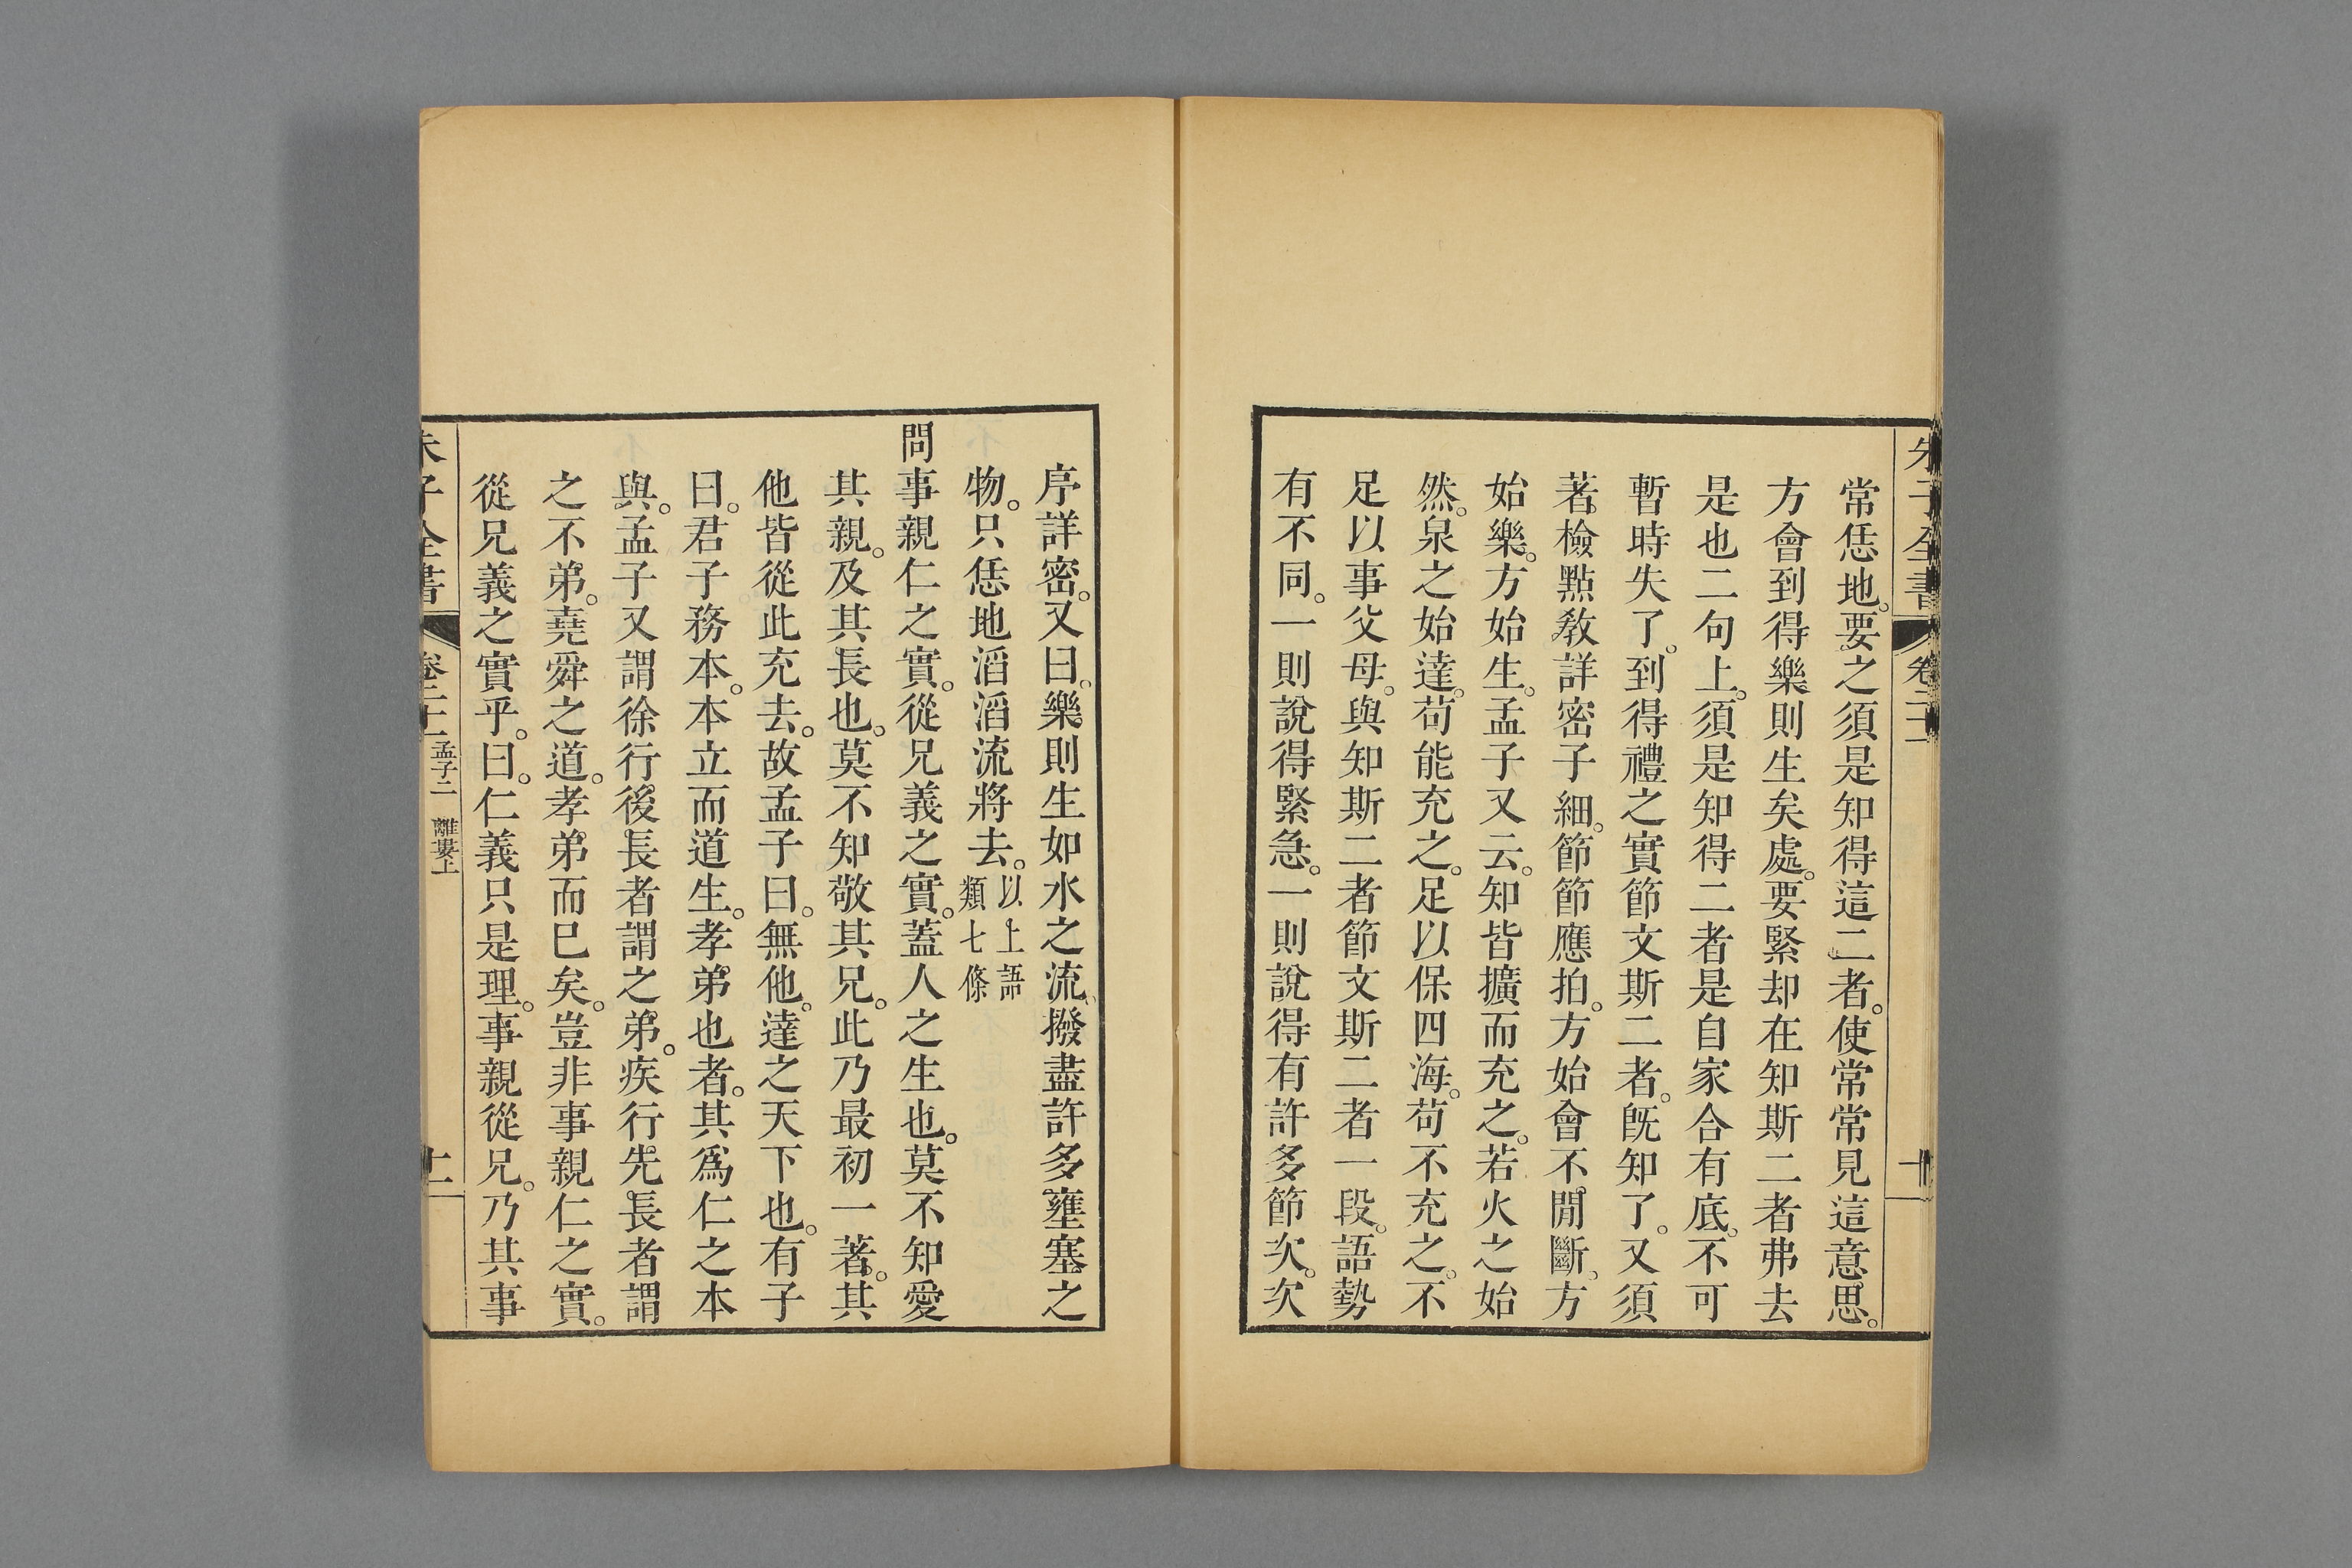 朱子全書 卷二十一 十
常恁地。要之須是知得這二者。使常常見這意思。
方會到得樂則生矣處。要緊却在知斯二者弗去
是也二句上。須是知得二者是自家合有底。不可
暫時失了。到得禮之實節文斯二者。旣知了。又須
著檢點敎詳密子細。節節應拍。方始會不閒斷。方
始樂。方始生。孟子又云。知皆擴而充之。若火之始
然。泉之始達。苟能充之。足以保四海。苟不充之。不
足以事父母。與知斯二者節文斯二者一段。語勢
有不同。一則說得緊急。一則說得有許多節次。次
序詳密。又曰。樂則生如水之流。撥盡許多壅塞之
物。只恁地滔滔流將去。以上語類七條
問事親仁之實。從兄義之實。蓋人之生也。莫不知愛
其親。及其長也。莫不知敬其兄。此乃最初一著。其
他皆從此充去。故孟子曰。無他。達之天下也。有子
曰。君子務本。本立而道生。孝弟也者。其爲仁之本
與。孟子又謂徐行後長者謂之弟。疾行先長者謂
之不弟。堯舜之道。孝弟而巳矣。豈非事親仁之實。
從兄義之實乎。曰。仁義只是理。事親從兄。乃其事
朱子全書 卷二十一 孟子二 離婁上 十一